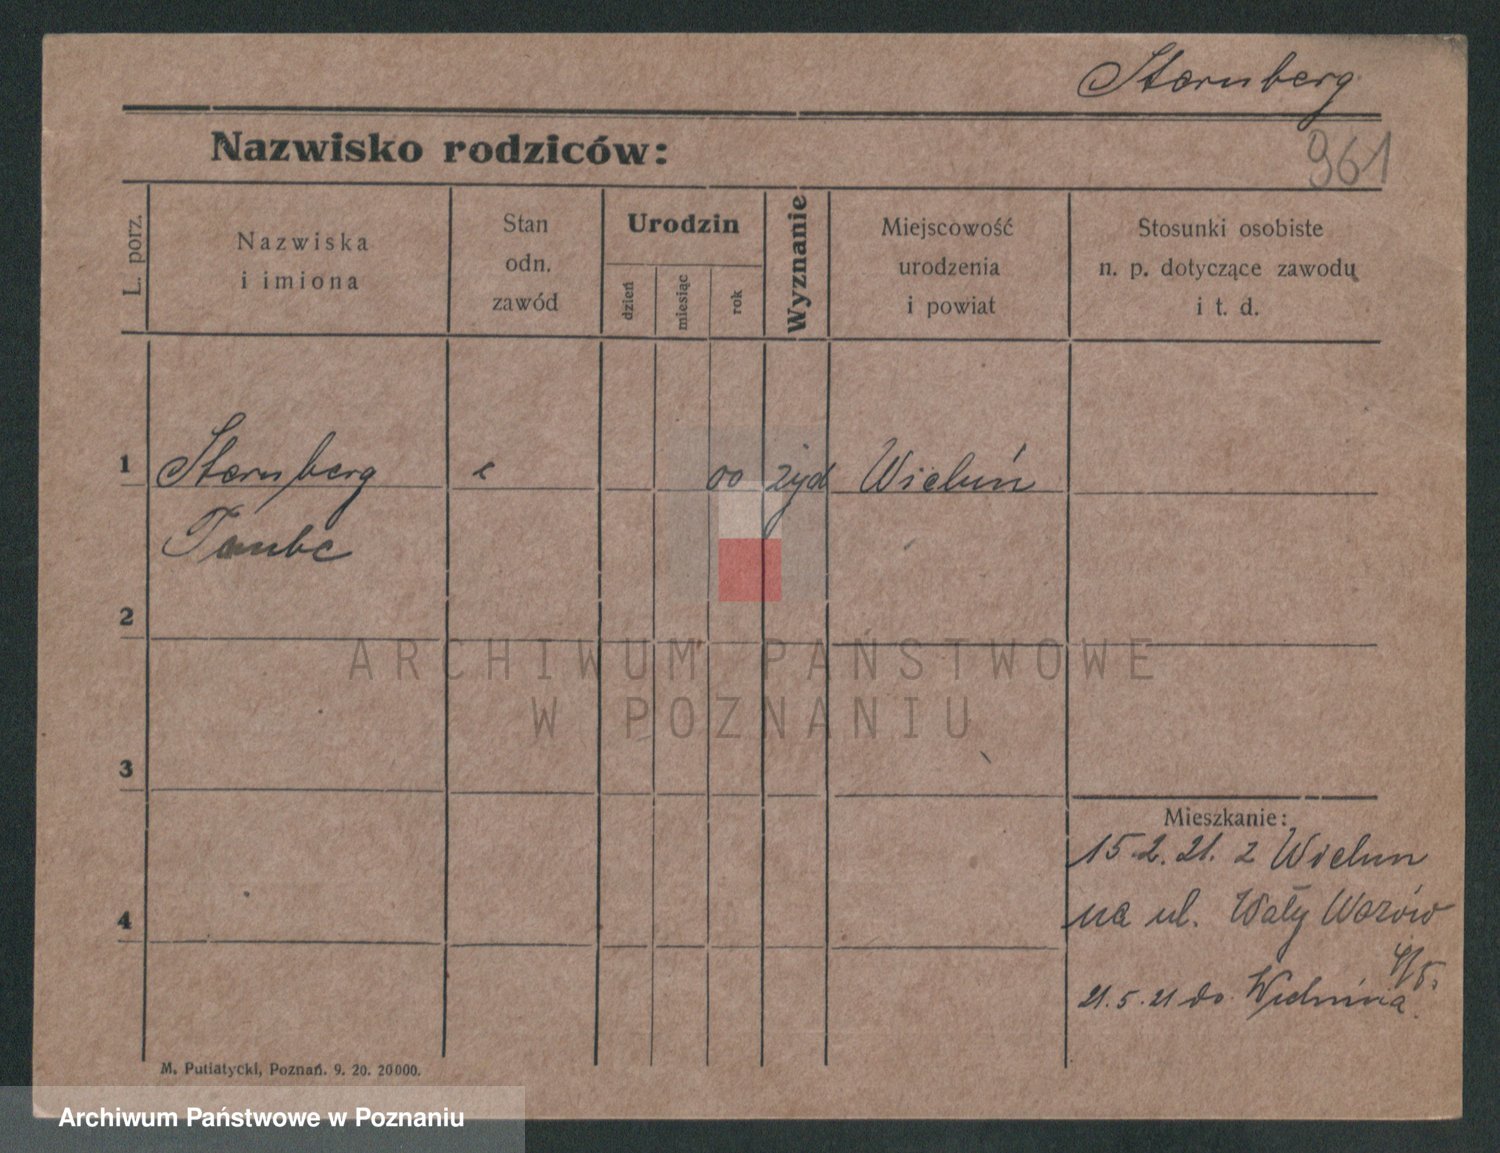 Sternberg
961
Nazwisko rodziców:
L. porz.
Nazwiska
i imiona
Stan
odn.
zawód
Urodzin
dzień
miesiąc
rok
Wyznanie
Miejscowość
urodzenia
i powiat
Stosunki osobiste
n. p. dotyczące zawodu
i t. d.
1
Sternberg
00
żyd
Wieluń
Taube
2
ARCHIWUM PAŃSTWOWE
W POZNANIU
3
Mieszkanie:
15.2.21. z Wielun
4
na ul. Wały Wazów
21.5.21 do Wielunia
M. Putiatycki, Poznań. 9. 20. 20000.
Archiwum Państwowe w Poznaniu